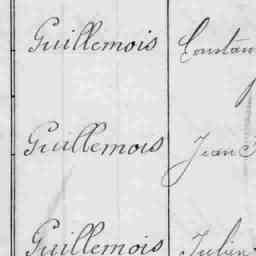 Guillemois Constan
Guillemois Jean
Guillemois Julien